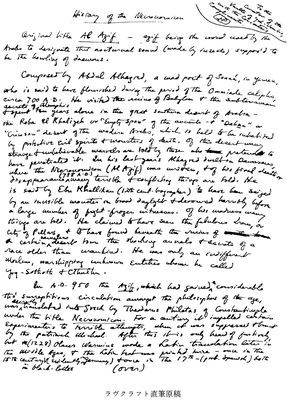 History of the Necronomicon
Original title Al Azif — azif being the word used by the
Arabs to designate that nocturnal sound (made by insects) supposed to
be the howling of daemons.
Composed by Abdul Alhazred, a mad poet of Sanaá, in Yemen,
who is said to have flourished during the period of the Ommiade caliphs,
circa 700 A.D. He visited the ruins of Babylon & the subterranean
secrets of Memphis & spent ten years alone in the great southern desert of Arabia —
the Roba El Khaliyeh or "Empty Space" of the ancients & "Dahna" or
"Crimson" desert of the modern Arabs, which is held to be inhabited
by protective evil spirits & monsters of death. Of this desert many
strange & unbelievable marvels are told by those who pretend to
have penetrated it. In his last years Alhazred dwelt in Damascus,
where the Necronomicon (Al Azif) was written, & of his final death or
disappearance (738 A.D.) many terrible & conflicting things are told. He
is said by Ebn Khallikan (12th cent. biographer) to have been seized
by an invisible monster in broad daylight & devoured horribly before
a large number of fright-frozen witnesses. Of his madness many
things are told. He claimed to have seen the fabulous Irem, or
City of Pillars, & to have found beneath the ruins of
a certain nameless desert town the shocking annals & secrets of a
race older than mankind. He was only an indifferent
Moslem, worshipping unknown entities whom he called
Yog-Sothoth & Cthulhu.
In A.D. 950 the Azif, which had gained considerable
tho' surreptitious circulation amongst the philosophers of the age,
was secretly translated into Greek by Theodorus Philetas of Constantinople
under the title Necronomicon. For a century it impelled certain
experimenters to terrible attempts, when it was suppressed & burnt
by the patriarch Michael. After this it is only heard of furtively,
but (1228) Olaus Wormius made a Latin translation later in
the Middle Ages, & the Latin text was printed twice — once in the
15th century in black-letter (evidently Germany) & once in the 17th — (prob. Spanish)
(over)
ラヴクラフト直筆原稿